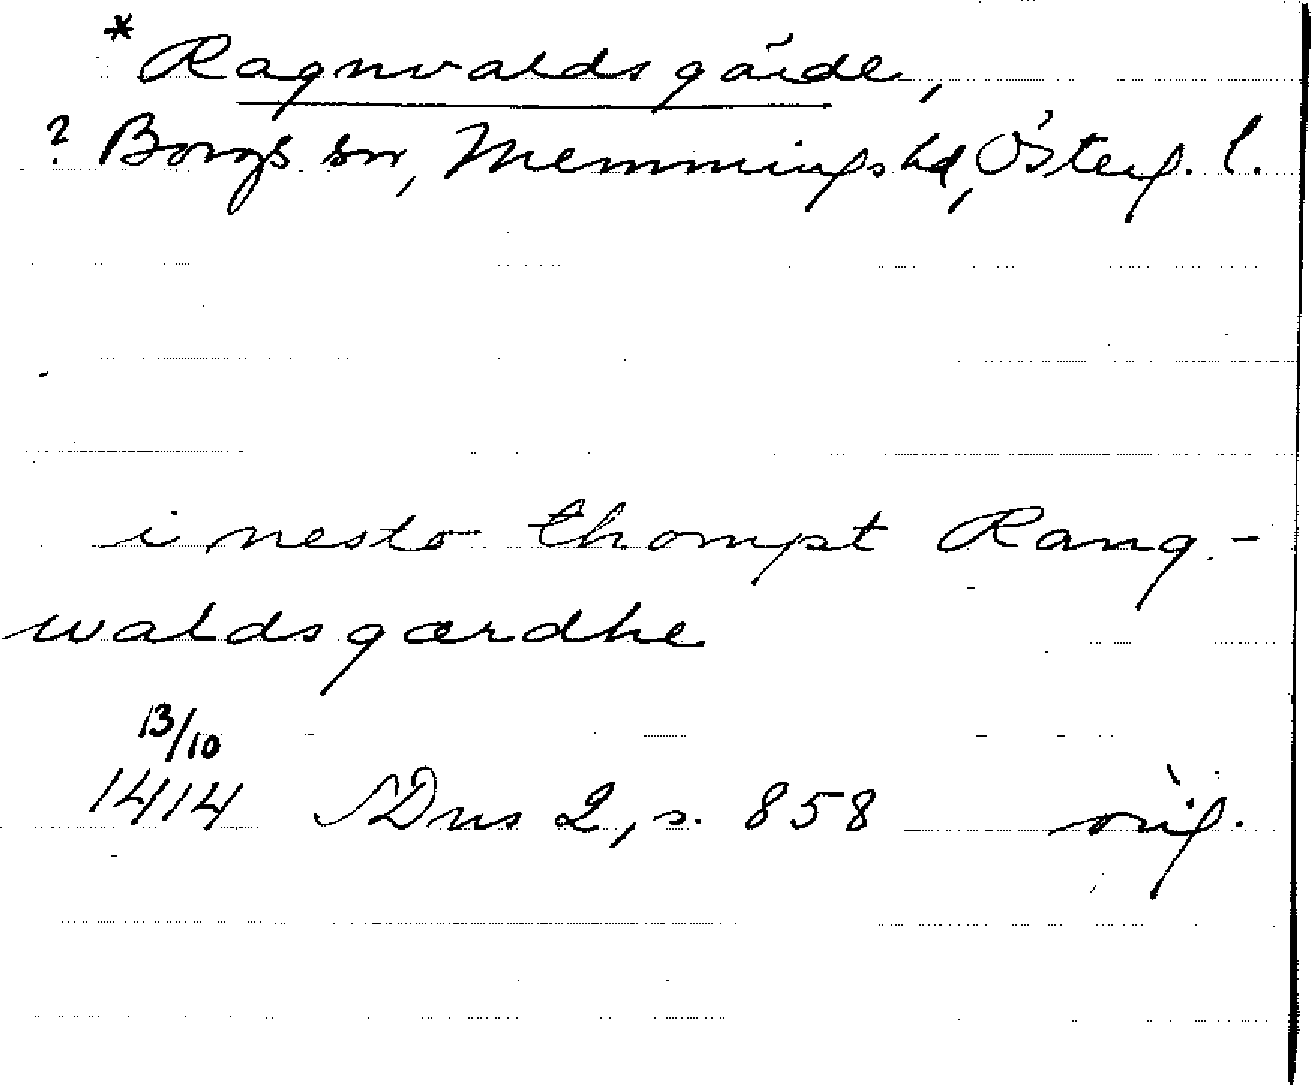 * Ragnvaldsgärde,
? Borgs sn, Memmings hd, Österg. l.
i nesto thompt Rang-
waldsgærdhe
13/10
1414 SDns 2, s. 858 orig.